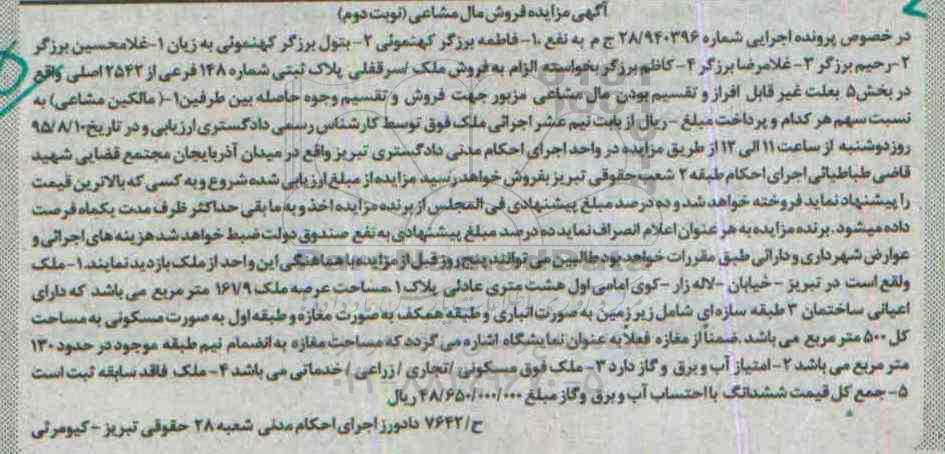 آگهی مزایده فروش مال مشاعی (نوبت دوم)
در خصوص پرونده اجرایی شماره ۲۸/۹۴۰۳۹۶ ج م به نفع ۱- فاطمه برزگر کهنموئی ۲- بتول برزگر کهنموئی به زیان ۱- غلامحسین برزگر
۲- رحیم برزگر ۳- غلامرضا برزگر ۴- کاظم برزگر بخواسته الزام به فروش ملک /سرقفلی پلاک ثبتی شماره ۱۴۸ فرعی از ۲۵۴۲ اصلی واقع
در بخش۵ بعلت غیر قابل افراز و تقسیم بودن مال مشاعی مزبور جهت فروش و تقسیم وجوه حاصله بین طرفین۱-( مالکین مشاعی) به
نسبت سهم هر کدام و پرداخت مبلغ - ریال از بابت نیم عشر اجرائی ملک فوق توسط کارشناس رسمی دادگستری ارزیابی و در تاریخ۹۵/۸/۱۰
روز دوشنبه از ساعت ۱۱ الی ۱۲ از طریق مزایده در واحد اجرای احکام مدنی دادگستری تبریز واقع در میدان آذربایجان مجتمع قضایی شهید
قاضی طباطبائی اجرای احکام طبقه ۲ شعب حقوقی تبریز بفروش خواهد رسید مزایده از مبلغ ارزیابی شده شروع و به کسی که بالاترین قیمت
را پیشنهاد نماید فروخته خواهد شد و ده درصد مبلغ پیشنهادی فی المجلس از برنده مزایده اخذ و به ما بقی حداکثر ظرف مدت یکماه فرصت
داده میشود. برنده مزایده به هر عنوان اعلام انصراف نماید ده درصد مبلغ پیشنهادی به نفع صندوق دولت ضبط خواهد شد هزینه های اجرائی و
عوارض شهرداری و دارائی طبق مقررات خواهد بود طالبین می توانند پنج روز قبل از مزایده با هماهنگی این واحد از ملک بازدید نمایند. ۱- ملک
واقع است در تبریز - خیابان -لاله زار -کوی امامی اول هشت متری عادلی پلاک ۱ مساحت عرصه ملک ۱۶۱/۹ متر مربع می باشد که دارای
اعیانی ساختمان ۳ طبقه سازه ای شامل زیر زمین به صورت انباری و طبقه همکف به صورت مغازه و طبقه اول به صورت مسکونی به مساحت
کل ۵۰۰ متر مربع می باشد .ضمناً از مغازه فعلاً به عنوان نمایشگاه اشاره می گردد که مساحت مغازه به انضمام نیم طبقه موجود در حدود ۱۳۰
متر مربع می باشد ۲- امتیاز آب و برق و گاز دارد ۳- ملک فوق مسکونی /تجاری / زراعی / خدماتی می باشد ۴- ملک فاقد سابقه ثبت است
۵- جمع کل قیمت ششدانگ با احتساب آب و برق و گاز مبلغ ۴۸/۶۵۰/۰۰۰/۰۰۰ ریال
ح/۷۶۴۲ دادورز اجرای احکام مدنی شعبه ۲۸ حقوقی تبریز - کیومرثی